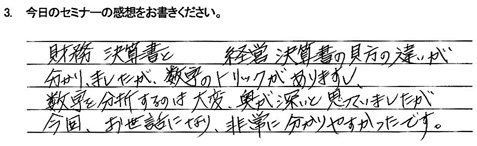 3. 今日のセミナーの感想をお書きください。
財務 決算書と 経営 決算書の見方の違いが
分かりましたが、数字のトリックがありますし、
数字を分析するのは大変、奥が深いと思っていましたが
今回、お世話になり、非常に分かりやすかったです。